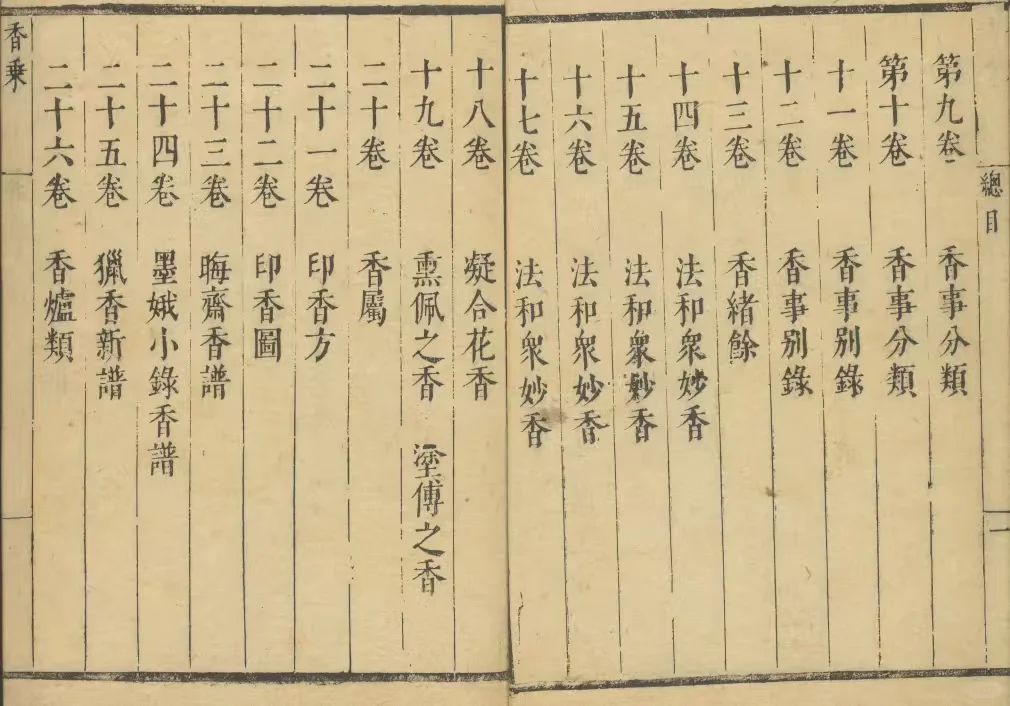 總目
一
第九卷 香事分類
第十卷 香事分類
十一卷 香事別錄
十二卷 香事別錄
十三卷 香緒餘
十四卷 法和衆妙香
十五卷 法和衆妙香
十六卷 法和衆妙香
十七卷 法和衆妙香
十八卷 凝合花香
十九卷 熏佩之香 塗傅之香
二十卷 香屬
二十一卷 印香方
二十二卷 印香圖
二十三卷 晦齋香譜
二十四卷 墨娥小錄香譜
二十五卷 獵香新譜
二十六卷 香爐類
香乗